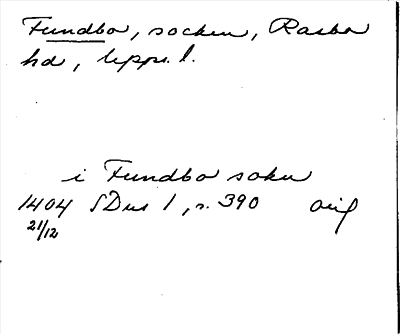 Fundbo, socken, Rasbo
hd, Upps. l.
i Fundbo sokn
1404 SDns 1, s. 390 orig
21/12